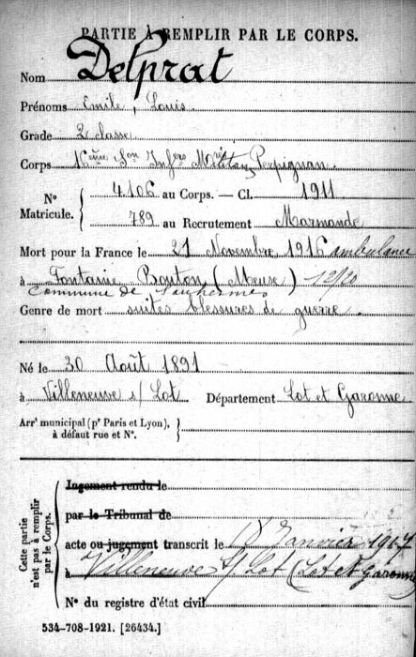 PARTIE À REMPLIR PAR LE CORPS.
Nom Delprat
Prénoms Emile, Louis
Grade 2 classe
Corps 16ème Son Infers Mres Perpignan
N° Matricule. 4.106 au Corps. — Cl. 1911
789 au Recrutement Marmande
Mort pour la France le 21 Novembre 1916 ambulance
à Fontaine Bouton (Meuse) 12/20
Commune de
Genre de mort suites blessures de guerre
Né le 30 Août 1891
à Villeneuve s/ Lot Département Lot et Garonne
Arrt municipal (pr Paris et Lyon),
à défaut rue et N°.
Cette partie n'est pas à remplir par le Corps.
Jugement rendu le
par le Tribunal de
acte ou jugement transcrit le Janvier 1917
à Villeneuve s/ Lot (Lot et Garonne)
N° du registre d'état civil
534-708-1921. [26434.]